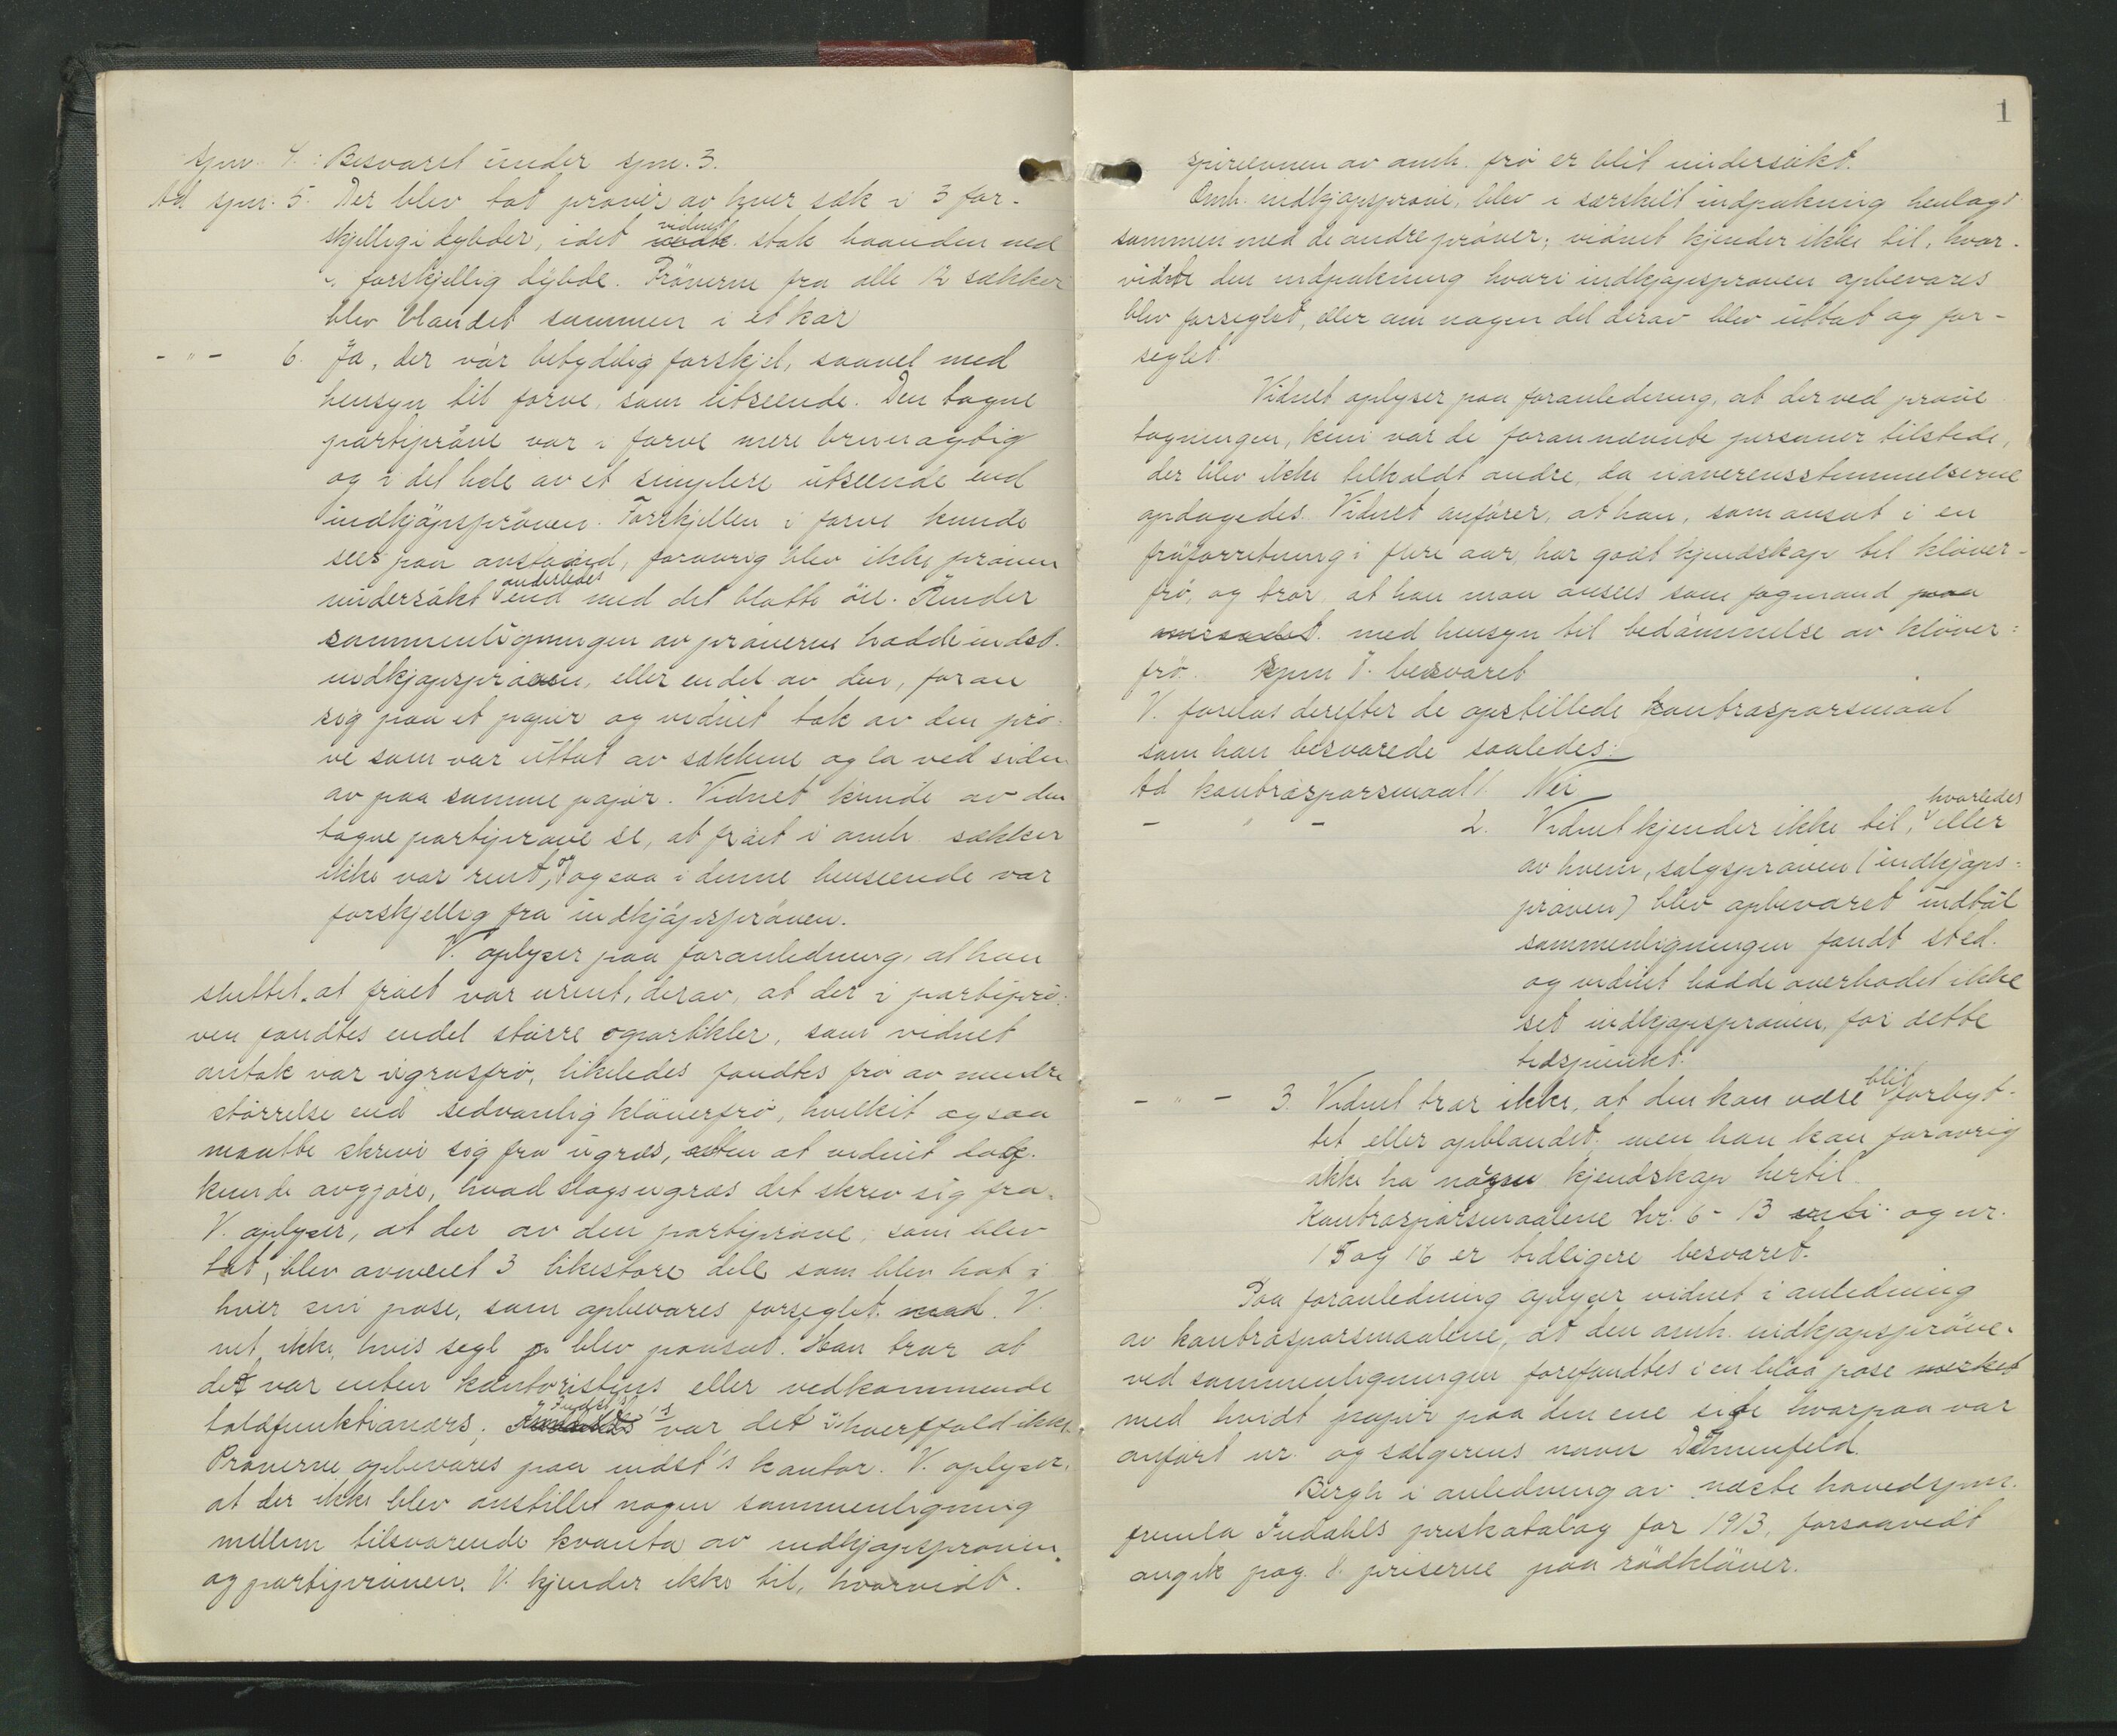 Spm. 4. : Besvaret under spm. 3.
Ad spm. 5. Der blev tat prøver av hver sæk i 3 for-
skjellige dybder, idet vidnet stak haanden ned
i forskjellig dybde. Prøverne fra alle 12 sækker
blev blandet sammen i et kar
- " - 6. Ja, der var betydelig forskjel, saavel med
hensyn til farve, som utseende. Den tagne
partiprøve var i farve mere brunagtig
og i det hele av et simplere utseende end
indkjøpsprøven. Forskjellen i farve kunde
sees paa avstand, forøvrig blev ikke prøven
undersøkt anderledes end med det blotte øie. Under
sammenligningen av prøverne hadde indst.
indkjøpsprøven, eller endel av den, foran
sig paa et papir og vidnet tok av den prø-
ve som var uttat av sækkene og la ved siden
av paa samme papir. Vidnet kunde av den
tagne partiprøve se, at frøet i omh. sækker
ikke var rent, og ogsaa i denne henseende var
forskjellig fra indkjøpsprøven.
V. oplyser paa foranledning, at han
sluttet, at frøet var urent, derav, at der i partiprø-
ven fandtes endel større partikler, som vidnet
antok var ugræsfrø, likeledes fandtes frø av mindre
størrelse end sedvanlig kløverfrø, hvilket ogsaa
maatte skrive sig fra ugræs, uten at vidnet dog
kunde avgjøre, hvad slags ugræs det skrev sig fra.
V. oplyser, at der av den partiprøve, som blev
tat, blev avveiet 3 likestore dele som blev hat i
hver sin pose, som opbevares forseglet. V.
vet ikke, hvis segl blev paasat. Han tror at
det var enten kontoristens eller vedkommende
toldfunktionærs, Indst's var det i hvertfald ikke.
Prøverne opbevares paa indst's kontor. V. oplyser,
at der ikke blev anstillet nogen sammenligning
mellem tilsvarende kvanta av indkjøpsprøven
og partiprøven. V. kjender ikke til, hvorvidt
1
spireevnen av omh. frø er blit undersøkt.
Omh. indkjøpsprøve, blev i særskilt indpakning henlagt
sammen med de andre prøver; vidnet kjender ikke til, hvor-
vidt den indpakning hvori indkjøpsprøven opbevares
blev forseglet, eller om nogen del derav blev uttat og for-
seglet.
Vidnet oplyser paa foranledning, at der ved prøve-
tagningen, kun var de forannævnte personer tilstede,
der blev ikke tilkaldt andre, da uoverensstemmelserne
opdagedes. Vidnet anfører, at han, som ansat i en
frøforretning i flere aar, har godt kjendskap til kløver-
frø, og tror, at han maa ansees som fagmand paa
omraadet. med hensyn til bedømmelse av kløver-
frø. Spm 7. besvaret
V. forelas derefter de opstillede kontraspørsmaal
som han besvarede saaledes:
Ad kontraspørsmaal 1. Nei
- " - 2. Vidnet kjender ikke til, hvorledes eller
av hvem, salgsprøven (indkjøps-
prøven) blev opbevaret indtil
sammenligningen fandt sted.
og vidnet hadde overhodet ikke
set indkjøpsprøven, før dette
tidspunkt.
- " - 3. Vidnet tror ikke, at den kan være blit forbyt-
tet eller opblandet; men han kan forøvrig
ikke ha nogen kjendskap hertil.
Kontraspørsmaalene nr. 6 - 13 og nr.
15 og 16 er tidligere besvaret.
Paa foranledning oplyser vidnet i anledning
av kontraspørsmaalene, at den omh. indkjøpsprøve
ved sammenligningen forefandtes i en blaa pose merket
med hvidt papir paa den ene side hvorpaa var
anført nr. og sælgerens navn Dannenfeld.
Bergh i anledning av næste hovedspm.
fremla Indahls priskatalog for 1913, forsaavidt
angik pag. 8. priserne paa rødkløver.